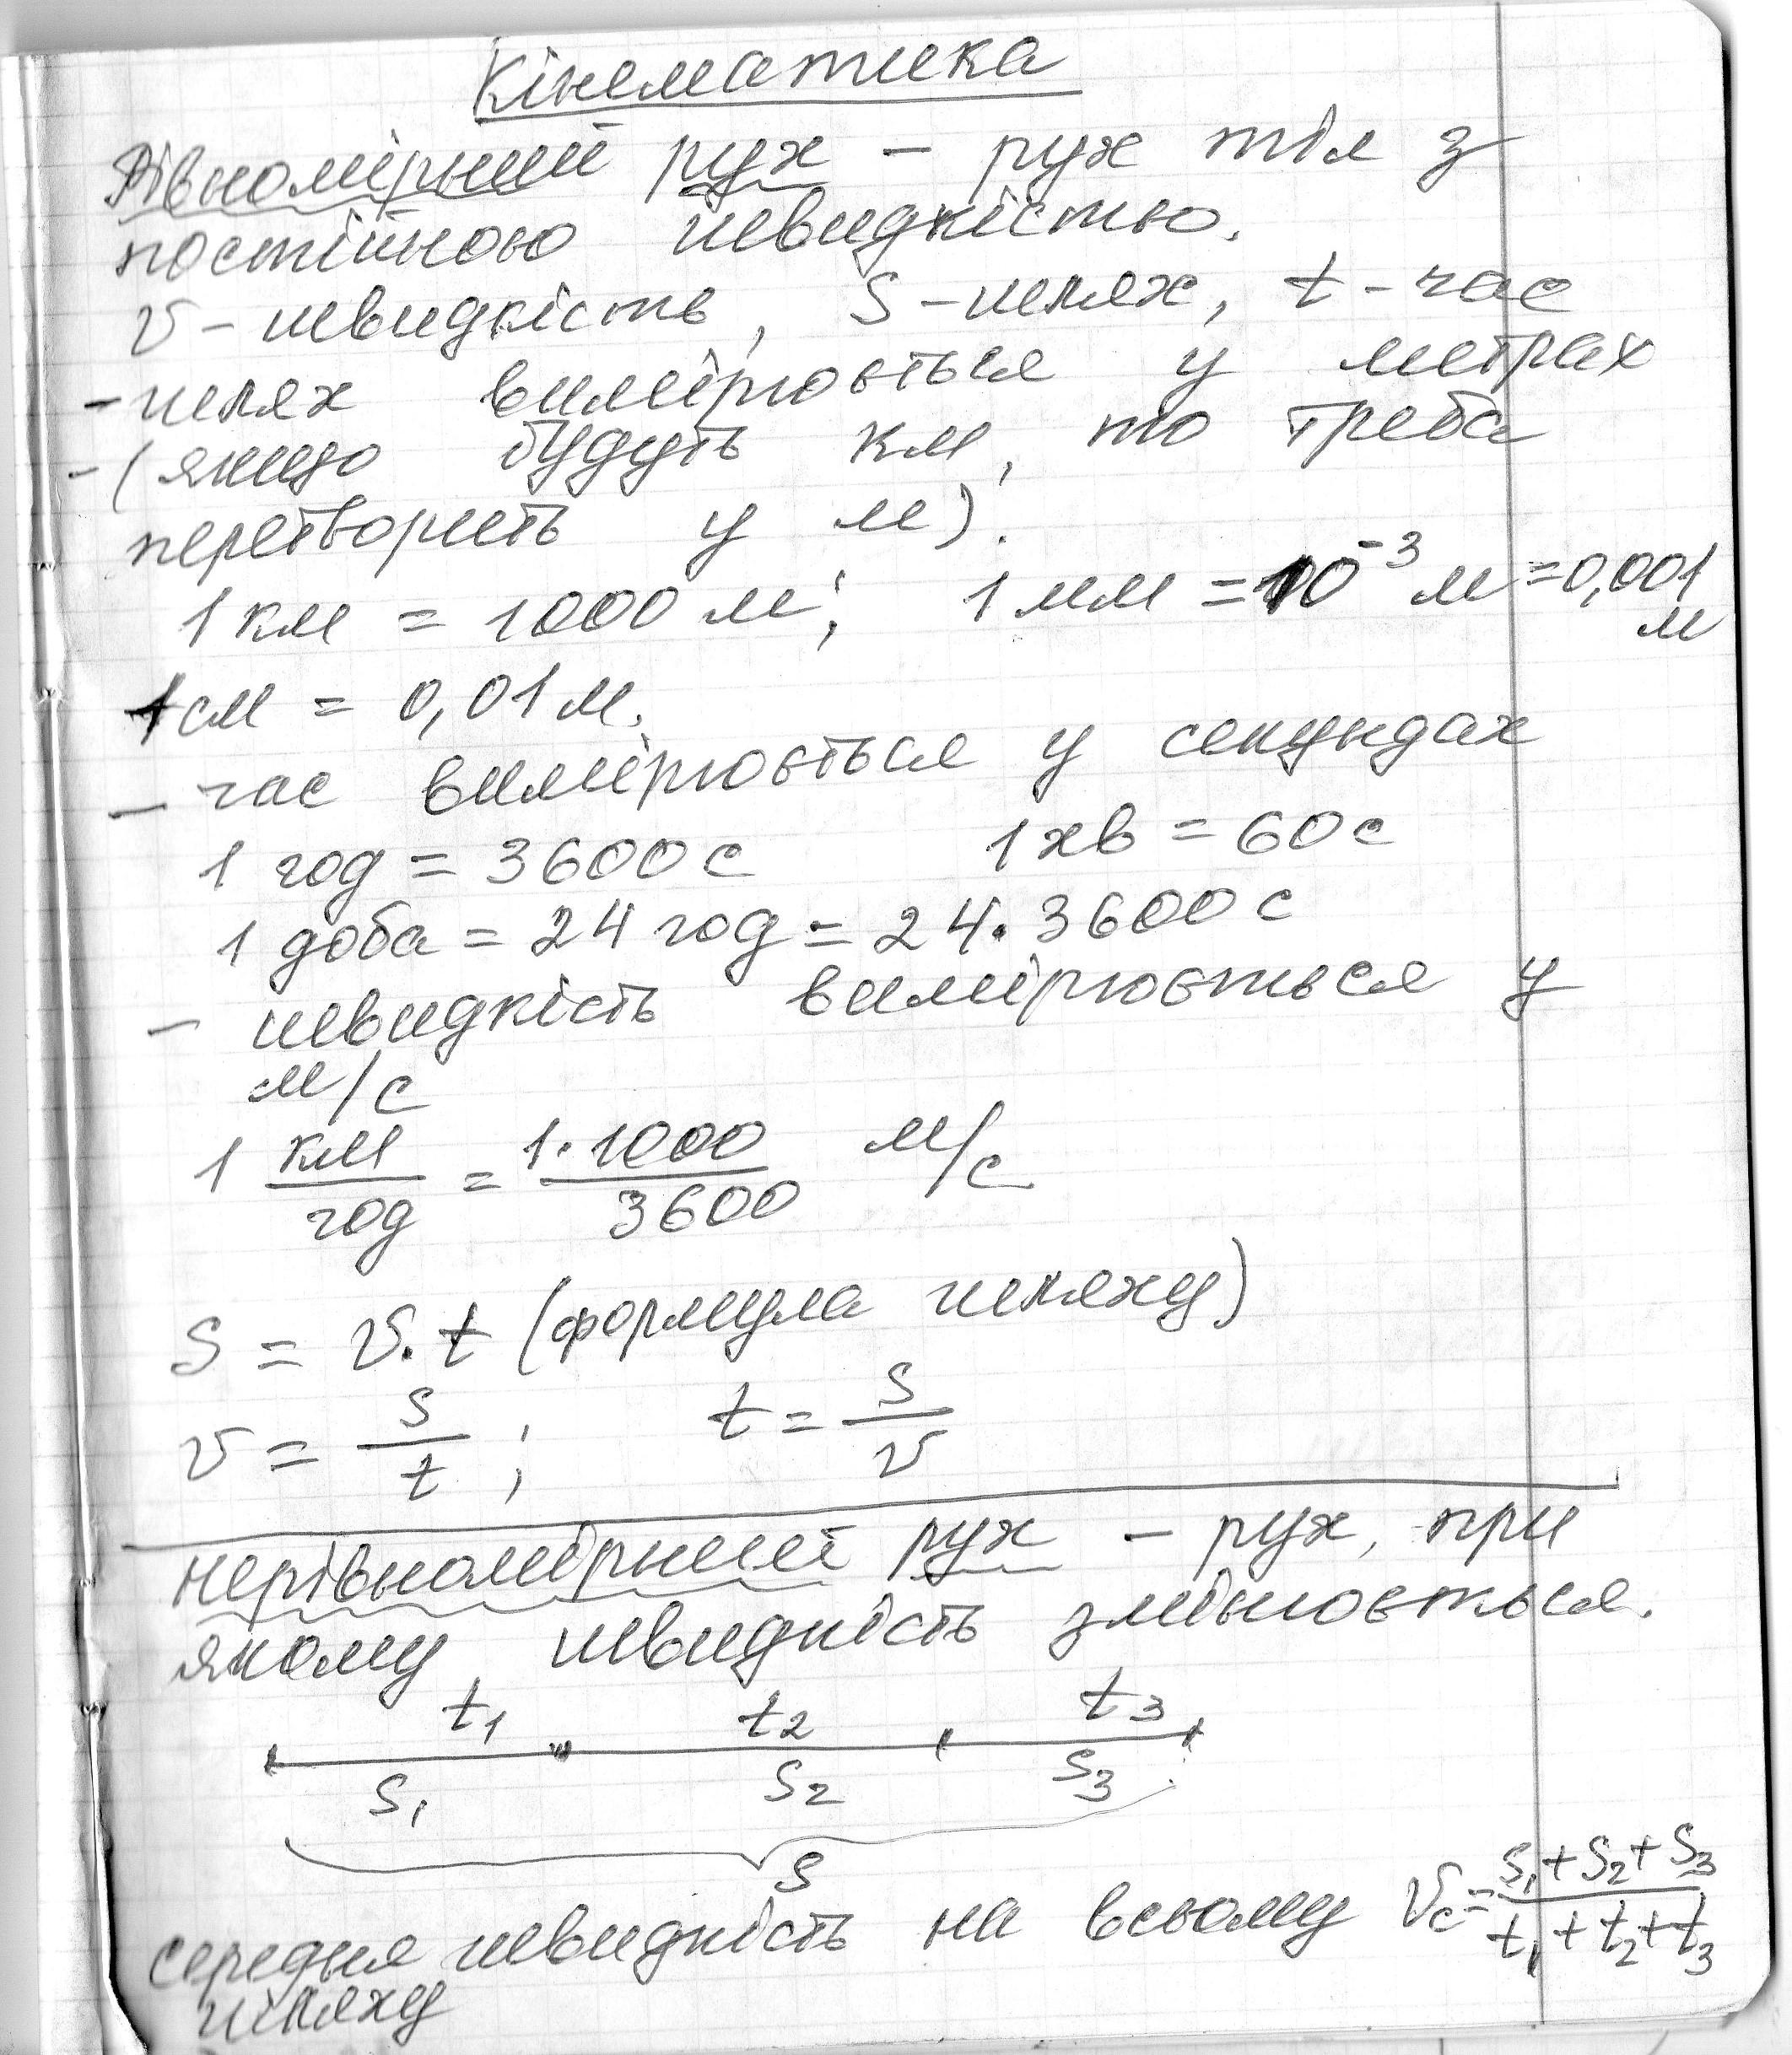 Кінематика
Рівномірний рух – рух тіл з
постійною швидкістю.
v – швидкість, S – шлях, t – час
– шлях вимірюється у метрах
– (якщо будуть км, то треба
перетворить у м).
1 км = 1000 м; 1 мм = 10⁻³ м = 0,001
м
1 см = 0,01 м.
– час вимірюється у секундах
1 год = 3600 с 1 хв = 60 с
1 доба = 24 год = 24 · 3600 с
– швидкість вимірюється у
м/с
1 км/год = 1·1000/3600 м/с
S = v · t (формула шляху)
v = S/t ; t = S/v
Нерівномірний рух – рух, при
якому швидкість змінюється.
t₁ t₂ t₃
S₁ S₂ S₃
S
середня швидкість на всьому vc = S₁ + S₂ + S₃/t₁ + t₂ + t₃
шляху